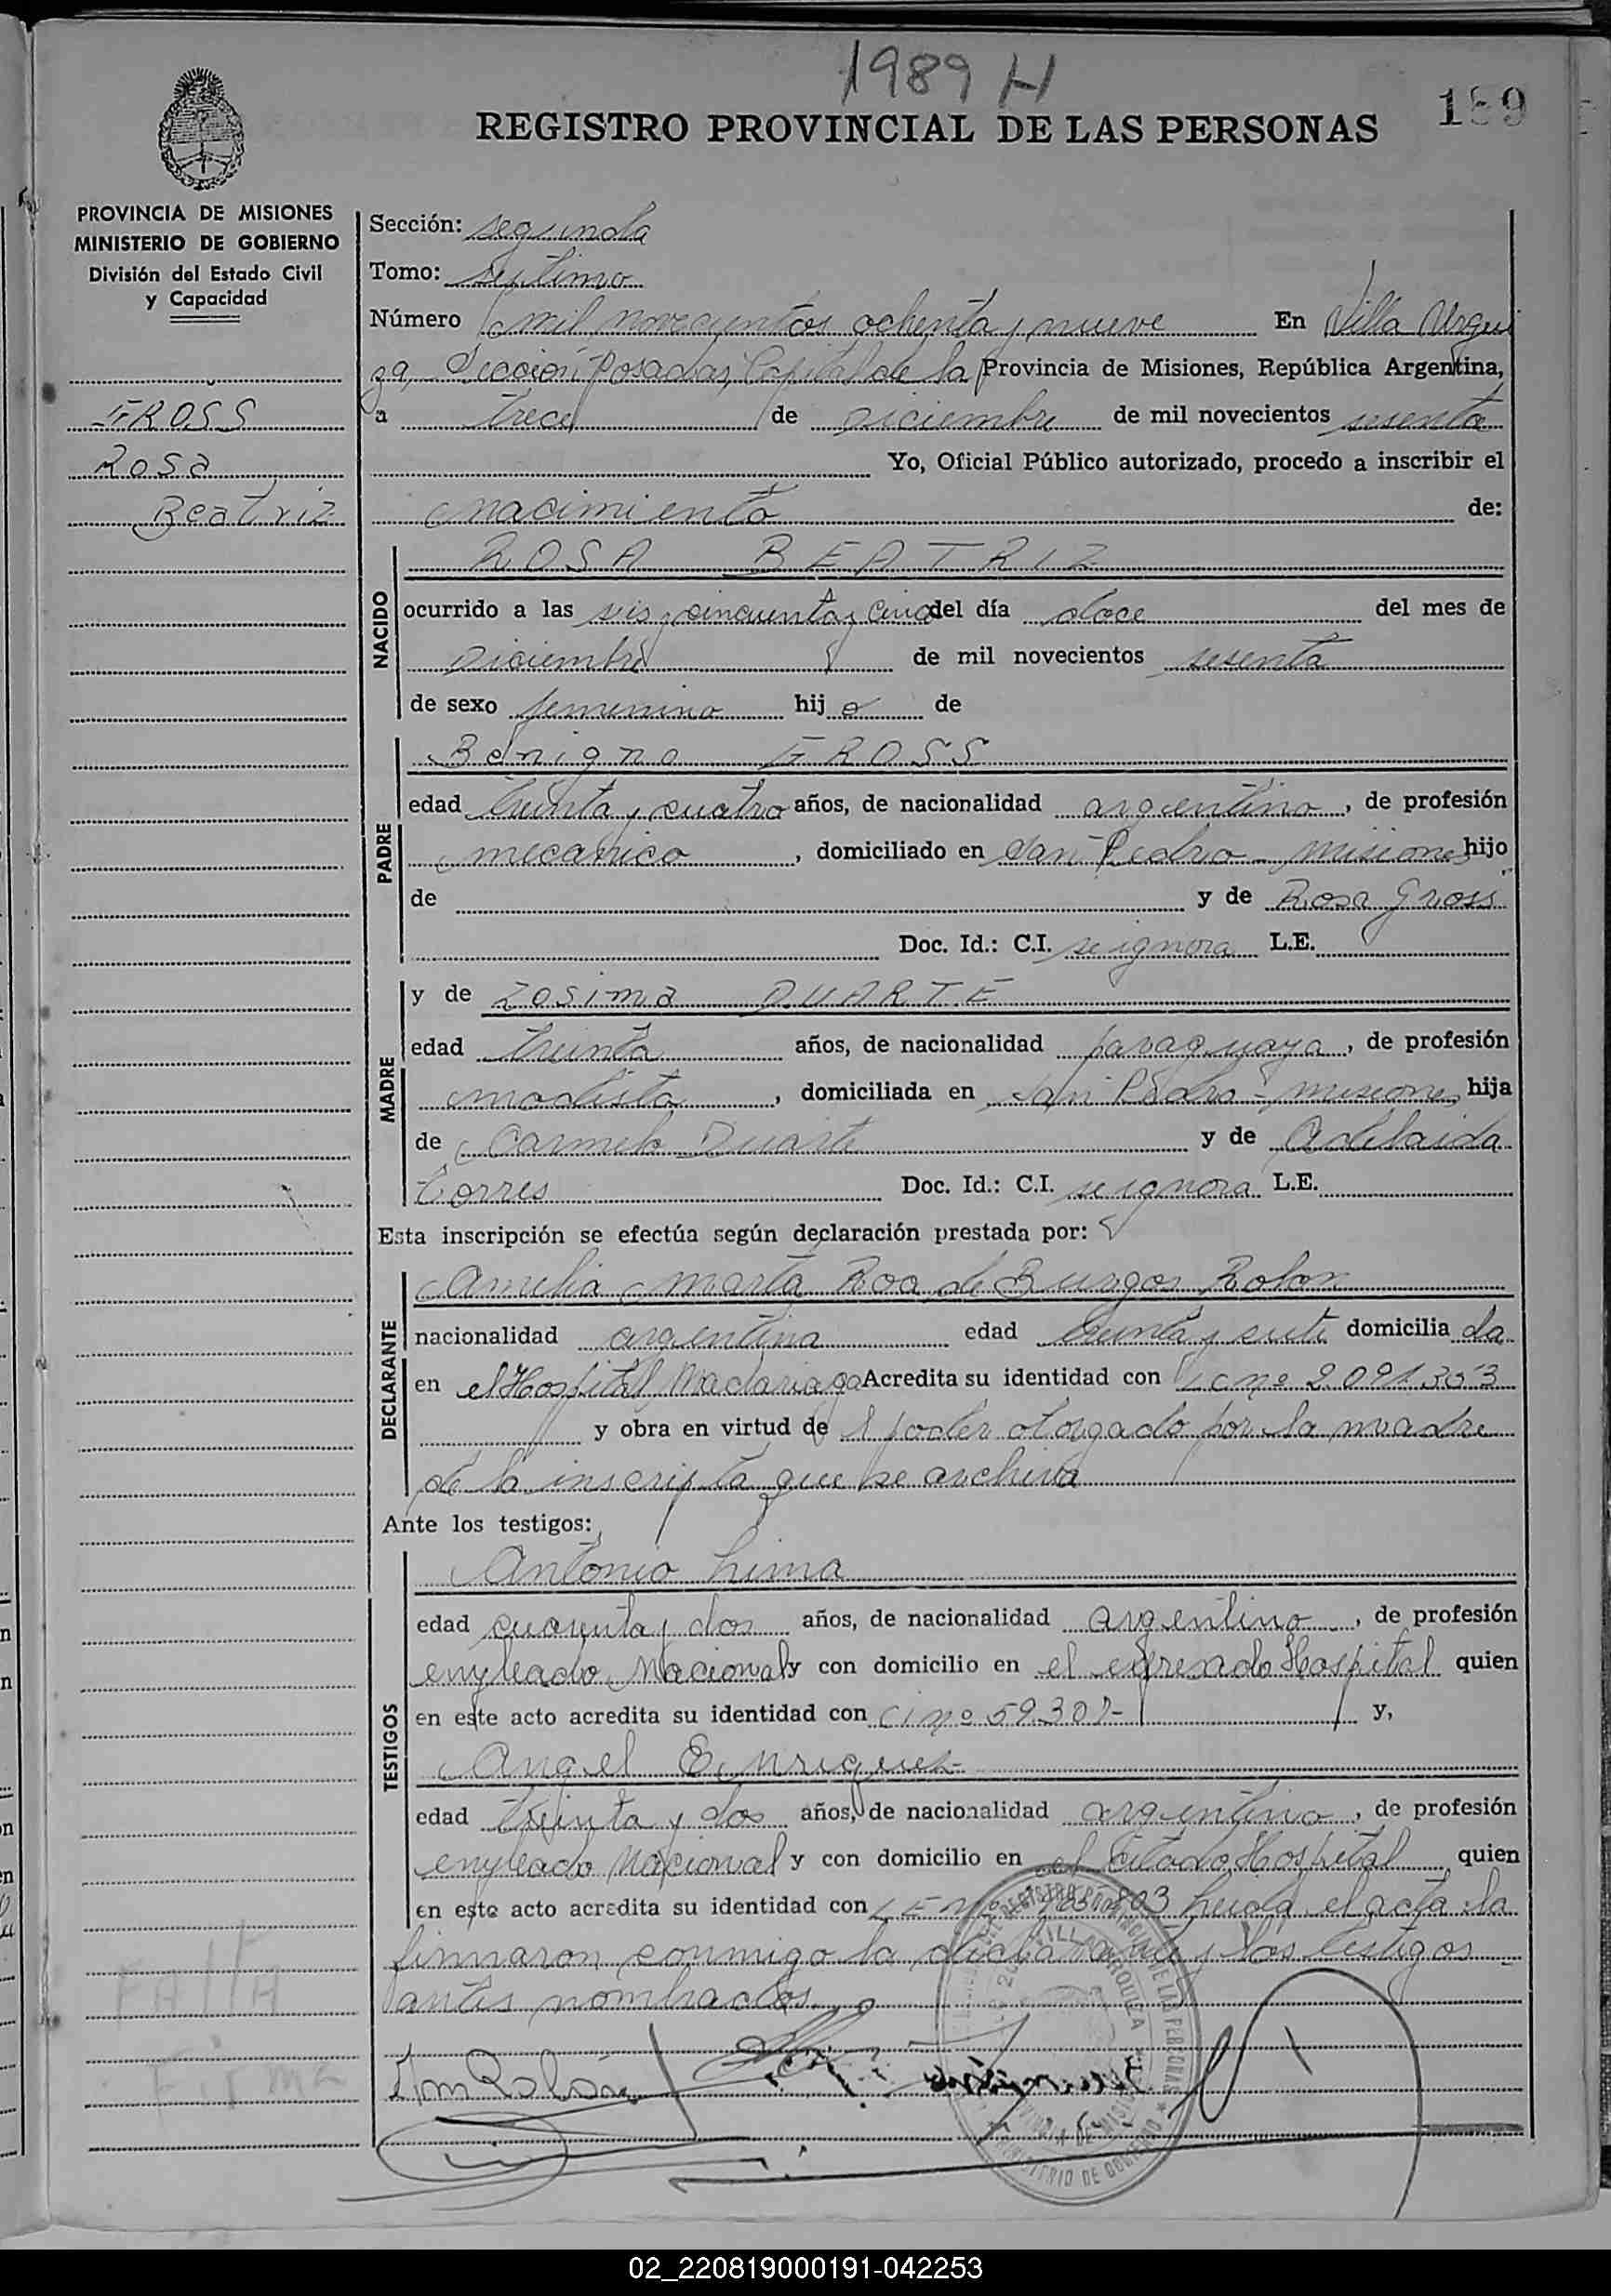 1989 H
189
REGISTRO PROVINCIAL DE LAS PERSONAS
PROVINCIA DE MISIONES
MINISTERIO DE GOBIERNO
División del Estado Civil
y Capacidad
GROSS
Rosa
Beatriz
FALTA
Firma
Sección: segunda
Tomo: septimo
Número mil novecientos ochenta y nueve En Villa Urqui
za, Sección Posadas, Capital de la Provincia de Misiones, República Argentina,
a trece de Diciembre de mil novecientos sesenta
Yo, Oficial Público autorizado, procedo a inscribir el
nacimiento de:
NACIDO
ROSA BEATRIZ
ocurrido a las seis y cincuenta y cinco del día doce del mes de
Diciembre de mil novecientos sesenta
de sexo femenino hij a de
PADRE
Benigno GROSS
edad treinta y cuatro años, de nacionalidad argentino, de profesión
mecanico, domiciliado en San Pedro - misiones hijo
de y de Rosa Gross
Doc. Id.: C.I. se ignora L.E.
MADRE
y de Zosima DUARTE
edad treinta años, de nacionalidad paraguaya, de profesión
modista, domiciliada en San Pedro - misiones hija
de Carmelo Duarte y de Adelaida
Torres Doc. Id.: C.I. se ignora L.E.
Esta inscripción se efectúa según declaración prestada por:
DECLARANTE
Amelia Marta Roa de Burgos Rolon
nacionalidad argentina edad treinta y siete domicilia da
en el Hospital Madariaga Acredita su identidad con nº 2.091.353
y obra en virtud de l poder otorgado por la madre
de la inscripta que se archiva
Ante los testigos:
TESTIGOS
Antonio Lima
edad cuarenta y dos años, de nacionalidad argentino, de profesión
empleado Nacional y con domicilio en el expresado Hospital quien
en este acto acredita su identidad con CI nº 59.301- y,
Angel Enriquez-
edad treinta y dos años, de nacionalidad argentino, de profesión
empleado Nacional y con domicilio en el citado Hospital quien
en este acto acredita su identidad con LE Leida el acta la
firmaron conmigo la declarante y los testigos
antes nombrados.
02_220819000191-042253